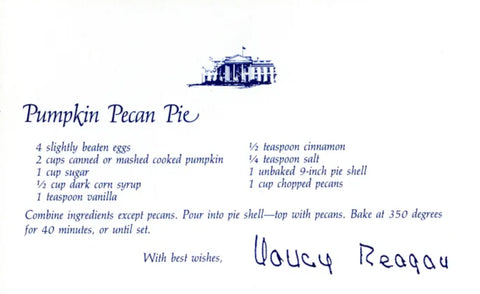 Pumpkin Pecan Pie
4 slightly beaten eggs
2 cups canned or mashed cooked pumpkin
1 cup sugar
½ cup dark corn syrup
1 teaspoon vanilla
½ teaspoon cinnamon
¼ teaspoon salt
1 unbaked 9-inch pie shell
1 cup chopped pecans
Combine ingredients except pecans. Pour into pie shell—top with pecans. Bake at 350 degrees
for 40 minutes, or until set.
With best wishes, Nancy Reagan